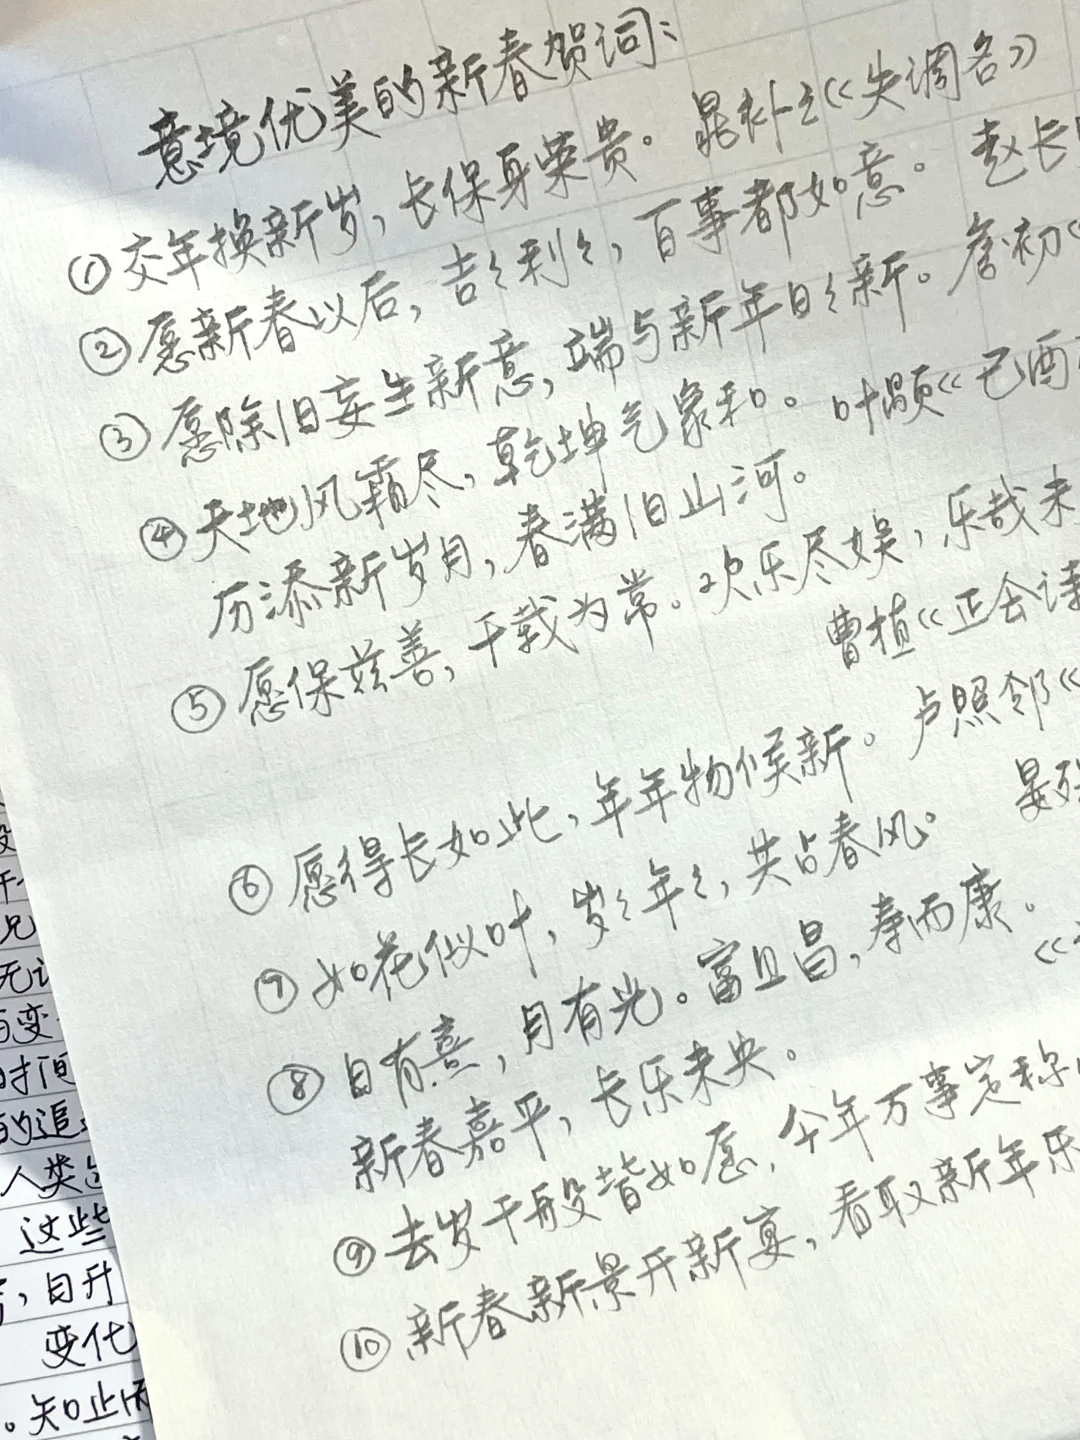 意境优美的新春贺词：
①交年换新岁，长保身荣贵。晁补之《失调名》
②愿新春以后，吉々利々，百事都如意。赵长
③愿除旧妄生新意，端与新年日々新。詹初《
④天地风霜尽，乾坤气象和。叶颙《己酉
历添新岁月，春满旧山河。
⑤愿保兹善，千载为常。欢乐尽娱，乐哉未
曹植《正会诗
⑥愿得长如此，年年物候新。卢照邻《
⑦如花似叶，岁々年々，共占春风。晏殊
⑧日有熹，月有光。富且昌，寿而康。《
新春嘉平，长乐未央。
⑨去岁千般皆如愿，今年万事定称
⑩新春新景开新宴，看取新年乐
兄
无
变
时间
的追
人类
这些
，日升
变化
。知止